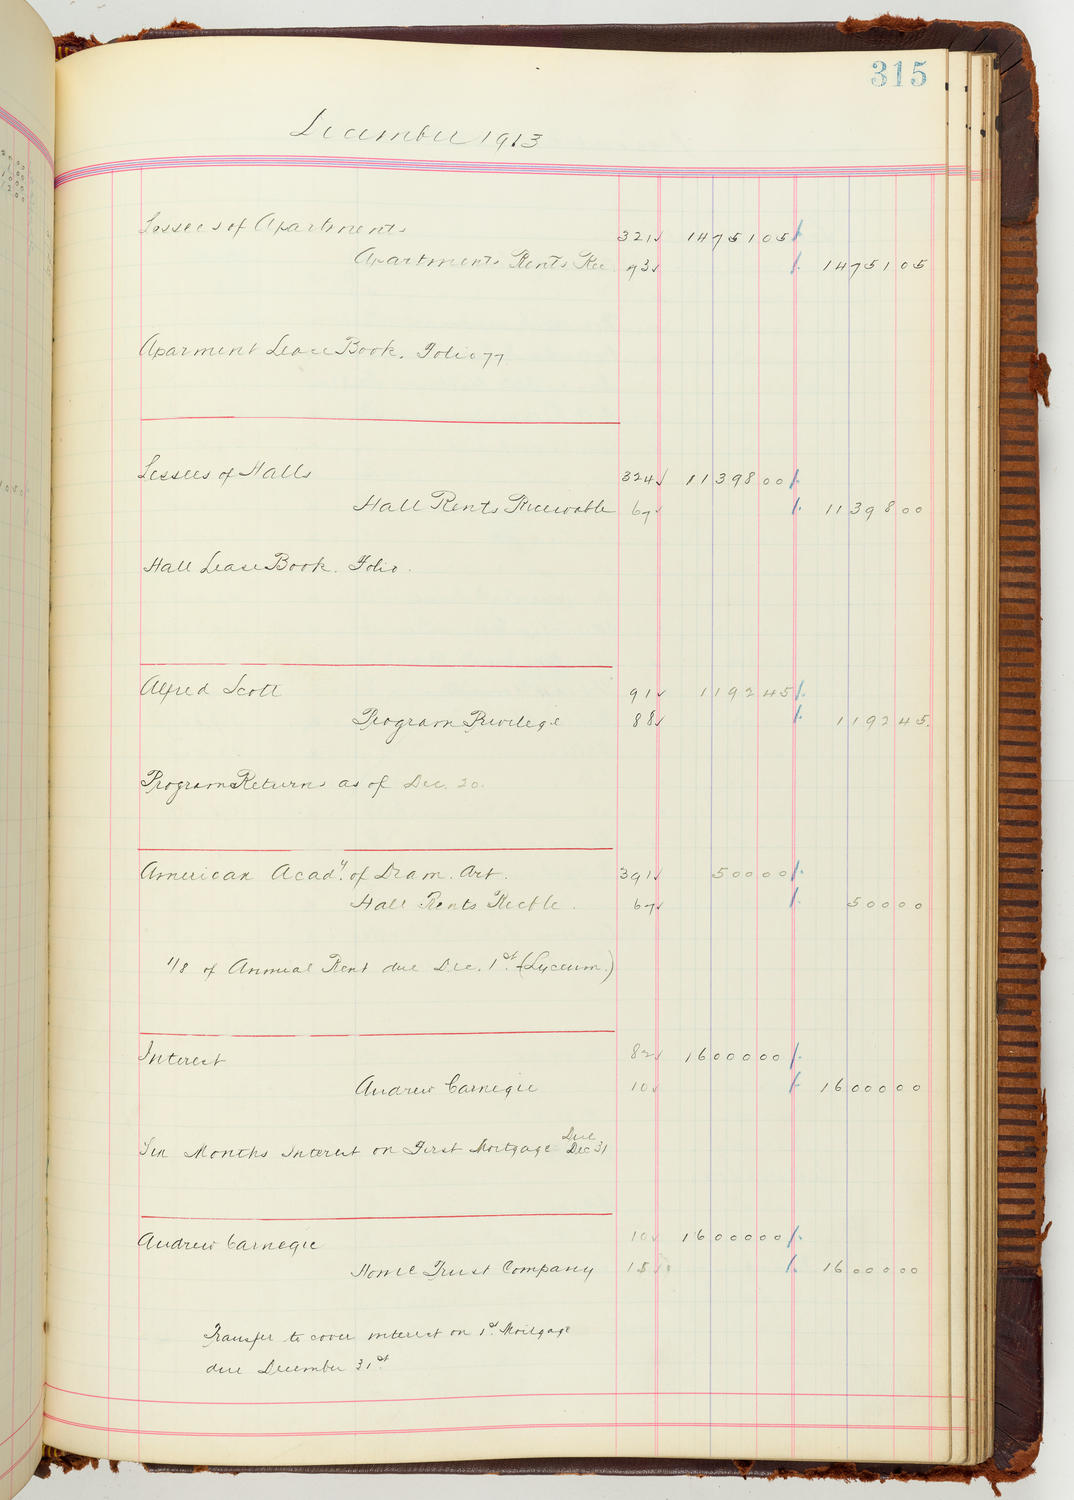 315
December 1913
Lessees of Apartments 321 14751 05
Apartments Rents Rec 73 14751 05
Aparment Lease Book. Folio 77
Lessees of Halls 324 11398 00
Hall Rents Receivable 67 11398 00
Hall Lease Book. Folio.
Alfred Scott 91 1192 45
Program Privilege 88 1192 45
Program Returns as of Dec. 20.
American Acad'y. of Dram. Art. 391 500 00
Hall Rents Recble. 67 500 00
1/8 of Annual Rent due Dec. 1st. (Lyceum.)
Interest 82 16000 00
Andrew Carnegie 10 16000 00
Six Months Interest on First Mortgage Due Dec 31
Andrew Carnegie 10 16000 00
Home Trust Company 15 16000 00
Transfer to cover interest on 1st. Mortgage
due December 31st.